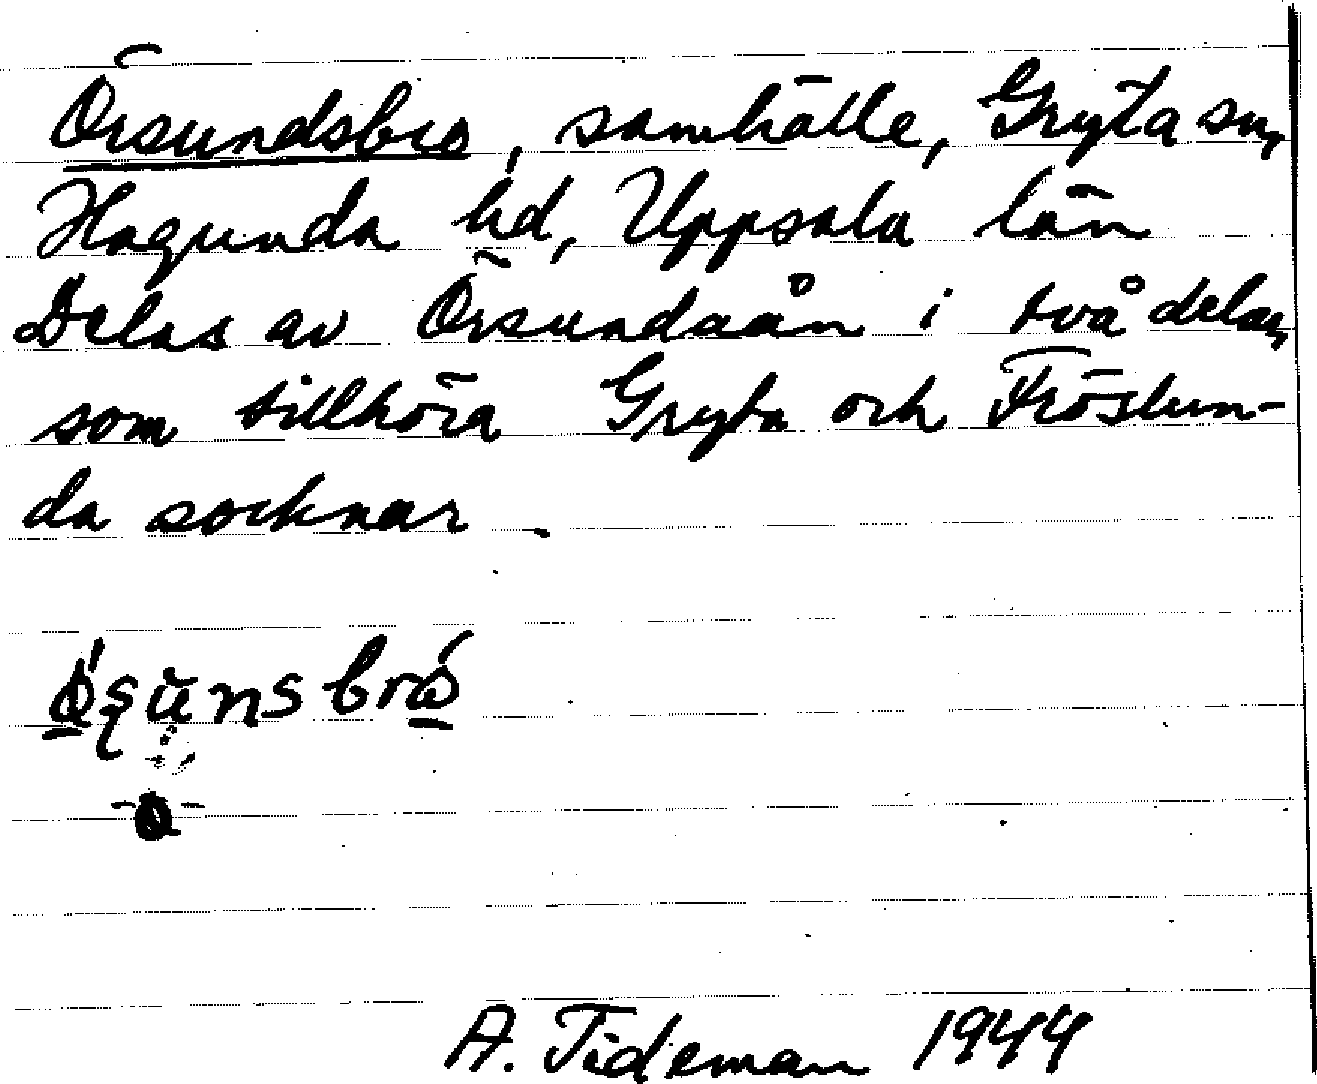 Örsundsbro, samhälle, Gryta sn,
Hagunda hd, Uppsala län
Delas av Örsundaån i två delar,
som tillhöra Gryta och Fröslun-
da socknar
A. Tideman 1944